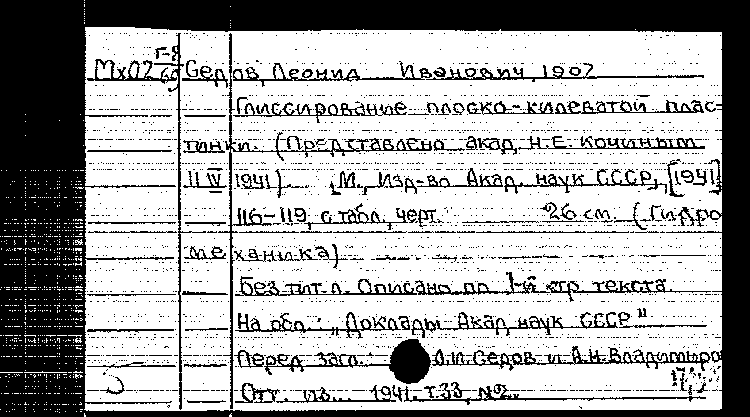 Мх02 Г-8/69 Седов, Леонид Иванович, 1907
Глиссирование плоско-килеватой плас-
тинки. (Представлено акад. Н.Е. Кочиным
11 IV 1941). М., Изд-во Акад. наук СССР, [1941]
116-119, с табл., черт. 26 см. (Гидро
механика)
Без тит. л. Описано по 1-й стр. текста
На обл.: „Доклады Акад. наук СССР"
Перед загл.: Л.И. Седов и А.Н. Владимиро
Отт. из... 1941. т.33, №2.